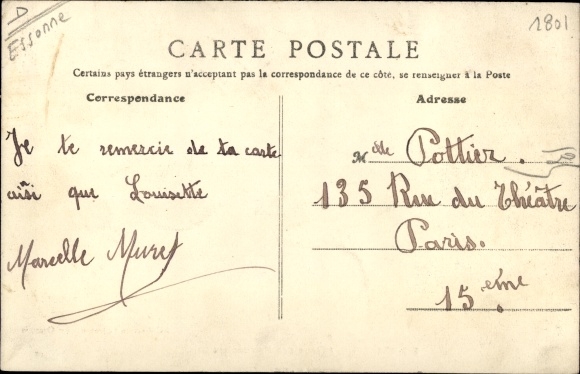 D
Essonne
1801
CARTE POSTALE
Certains pays étrangers n'acceptant pas la correspondance de ce côté, se renseigner à la Poste
Correspondance
Je te remercie de ta carte
ainsi que Louisette
Marcelle Muret
Adresse
Mlle Pottier.
135 Rue du Théâtre
Paris.
15 ème